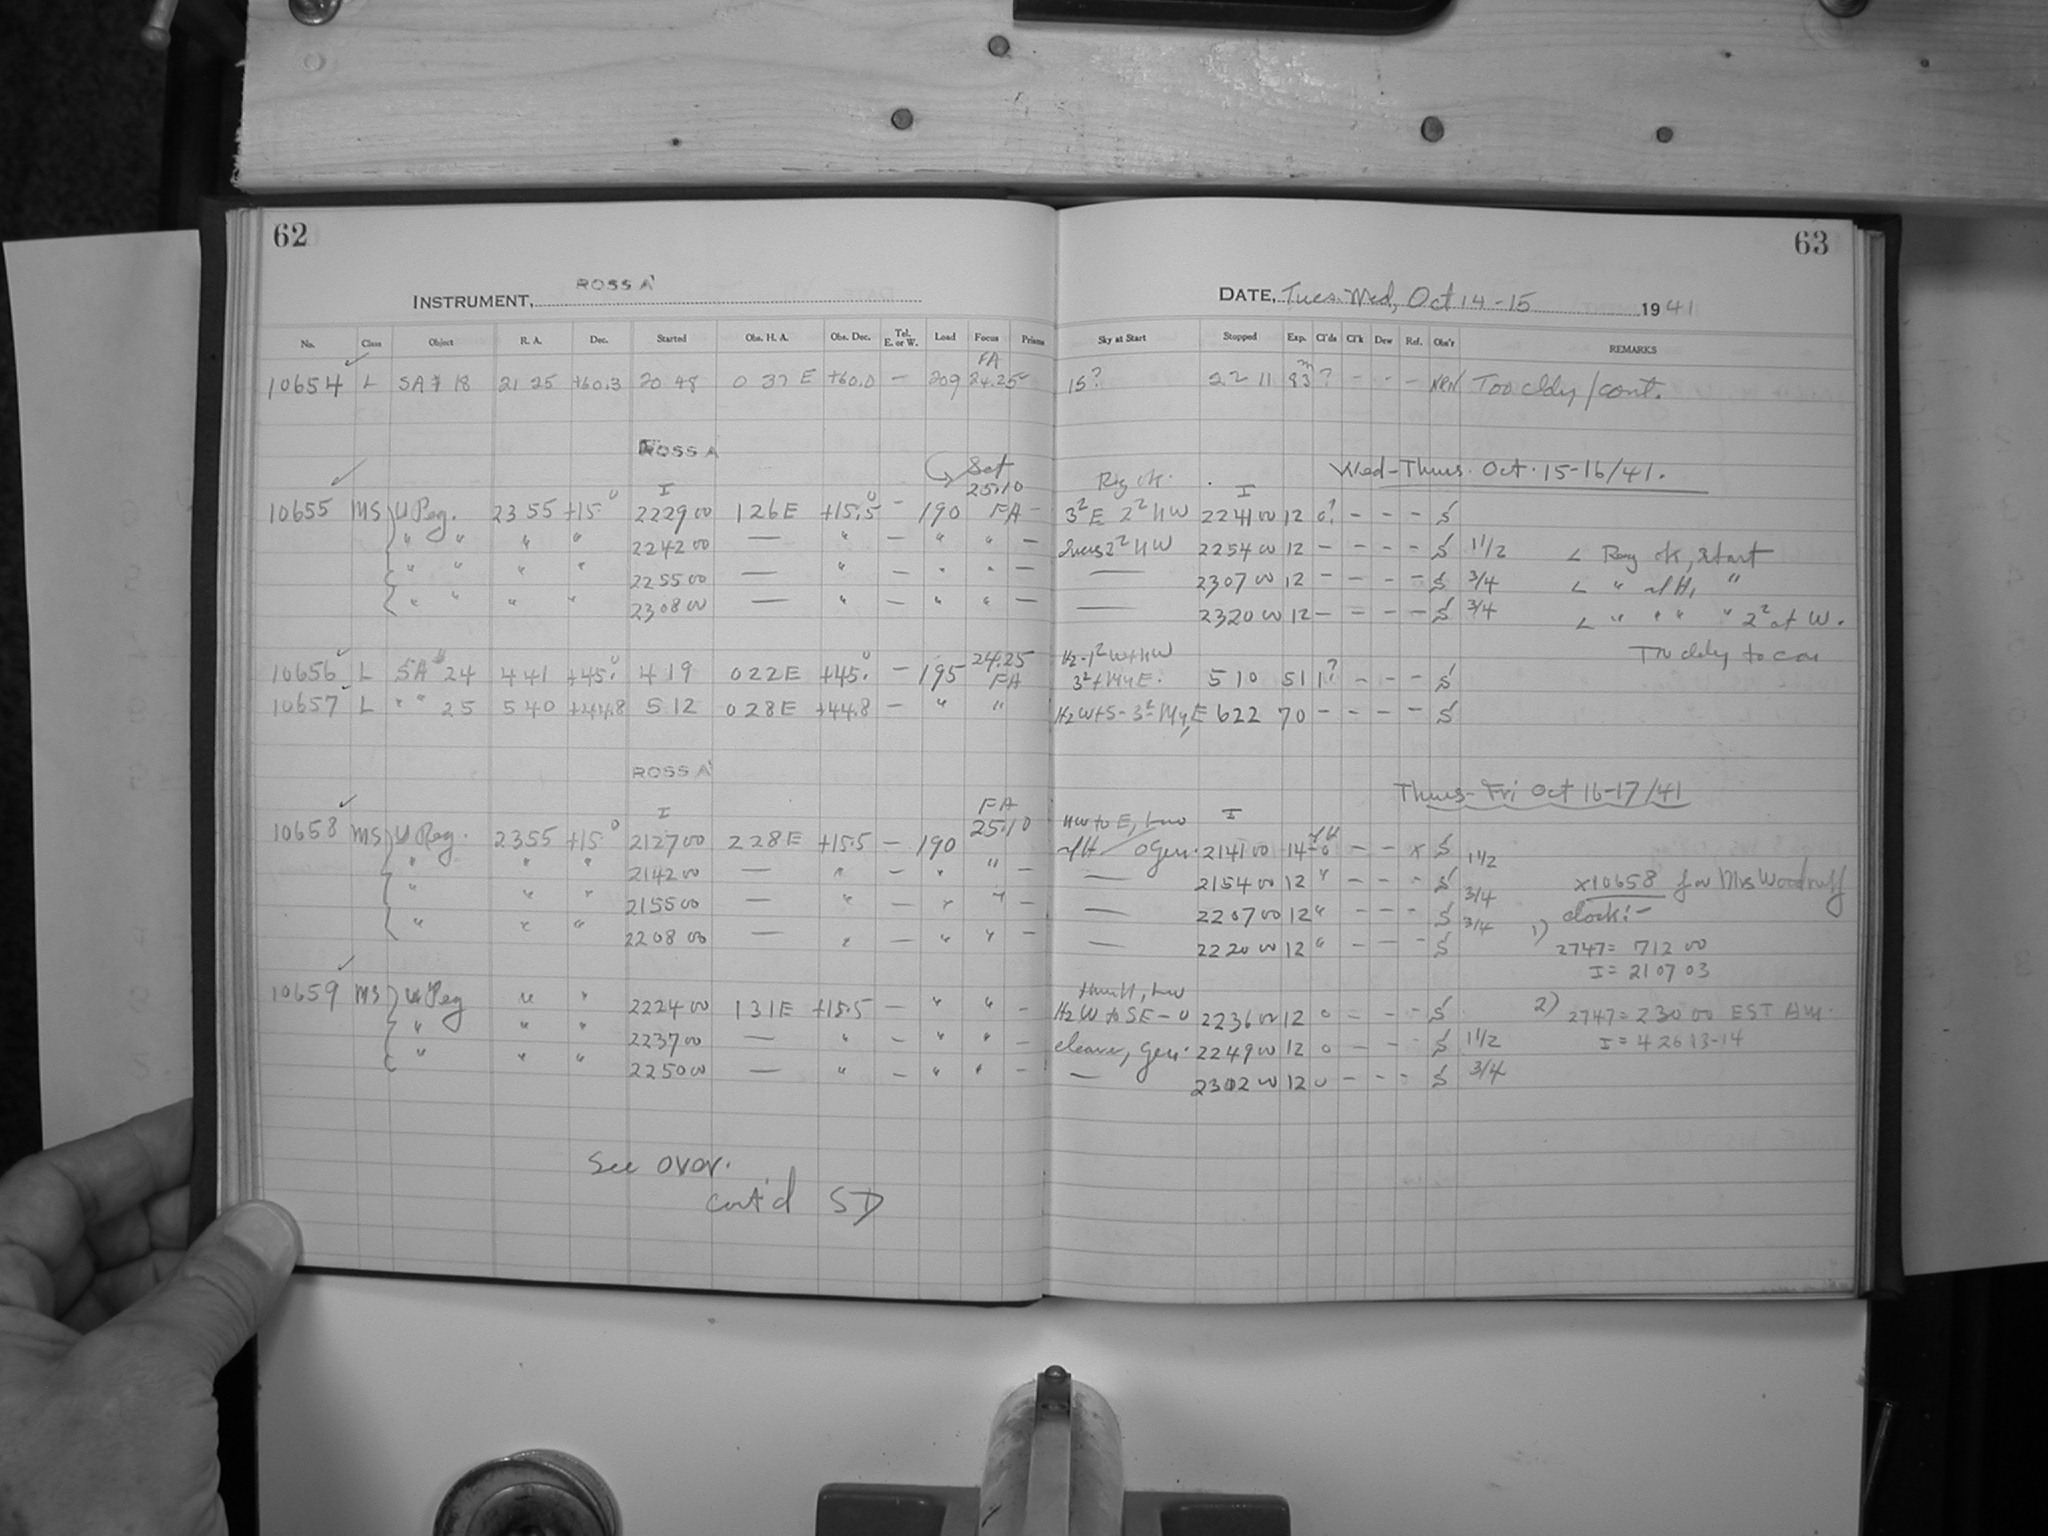 62
63
ROSS A
INSTRUMENT,
DATE, Tues. Wed, Oct 14-15 1941
No. Class Object R. A. Dec. Started Obs. H. A. Obs. Dec. Tel. E. or W. Load Focus Prisms Sky at Start Stopped Exp. Cl'ds Cl'k Dew Ref. Obs'r REMARKS
FA
10654 L SA # 18 21 25 +60.3 20 48 0 37 E +60.0 — 209 24.25 15? 22 11 83 m ? - - - Too cldy/cont.
ROSS A
Wed-Thurs. Oct. 15-16/41.
Set
25.10
I Reg ok. I
10655 MS U Peg. 23 55 +15° 22 29 00 1 26 E +15.5 - 190 FA - 3² E 2² HW 22 41 00 12 0? - - - S
" " " " 22 42 00 — " — " " — 2² HW 22 54 00 12 - - - - S 1 1/2 L Reg ok, start
" " " " 22 55 00 — " — " " — — 23 07 00 12 - - - - S 3/4 L " H, "
" " " " 23 08 00 — " — " " — — 23 20 00 12 - - - - S 3/4 L " " " " 2² at W.
24.25 cldy to
10656 L SA # 24 4 41 +45.0 4 19 0 22 E +45.0 — 195 FA 3² + E. 5 10 51 1? - - - S
10657 L " " 25 5 40 +44.8 5 12 0 28 E +44.8 — " " H2 W+S - 3² E 6 22 70 - - - - S
ROSS A
Thurs-Fri Oct 16-17/41
FA
I 25.10 HW to E, I
10658 MS U Peg. 23 55 +15° 21 27 00 2 28 E +15.5 — 190 Gen. 21 41 00 14 0 - - x S
" " " 21 42 00 — " — " " — — 21 54 00 12 " - - - S 1 1/2 x10658 for Mrs Woodruff
" " " 21 55 00 — " — " " — — 22 07 00 12 " - - - S 3/4 clock:-
" " " 22 08 00 — " — " " — — 22 20 00 12 " - - - S 3/4 1) 2747= 7 12 00
I = 21 07 03
10659 MS U Peg " " 22 24 00 1 31 E +15.5 — " " - H2 W to SE - 0 22 36 00 12 0 - - - S 2) 2747= 2 30 00 EST AM.
" " " 22 37 00 — " — " " — clear, Gen. 22 49 00 12 0 - - - S 1 1/2 I = 4 26 13-14
" " " 22 50 00 — " — " " — — 23 02 00 12 0 - - - S 3/4
See over.
cont'd SD